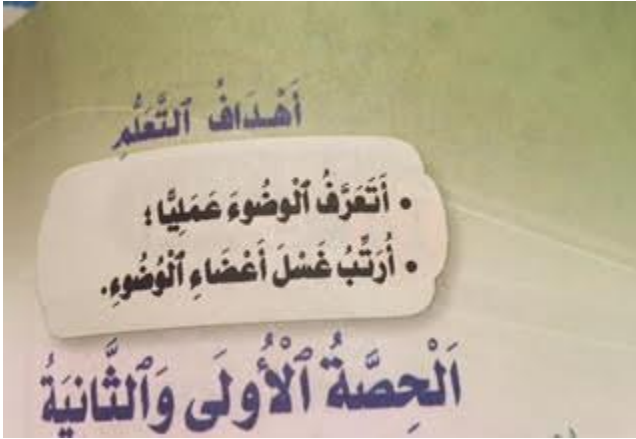 أَهْدَافُ ٱلتَّعَلُّمِ
• أَتَعَرَّفُ ٱلْوُضُوءَ عَمَلِيًّا ؛
• أُرَتِّبُ غَسْلَ أَعْضَاءِ ٱلْوُضُوءِ.
اَلْحِصَّةُ ٱلْأُولَى وَٱلثَّانِيَةُ